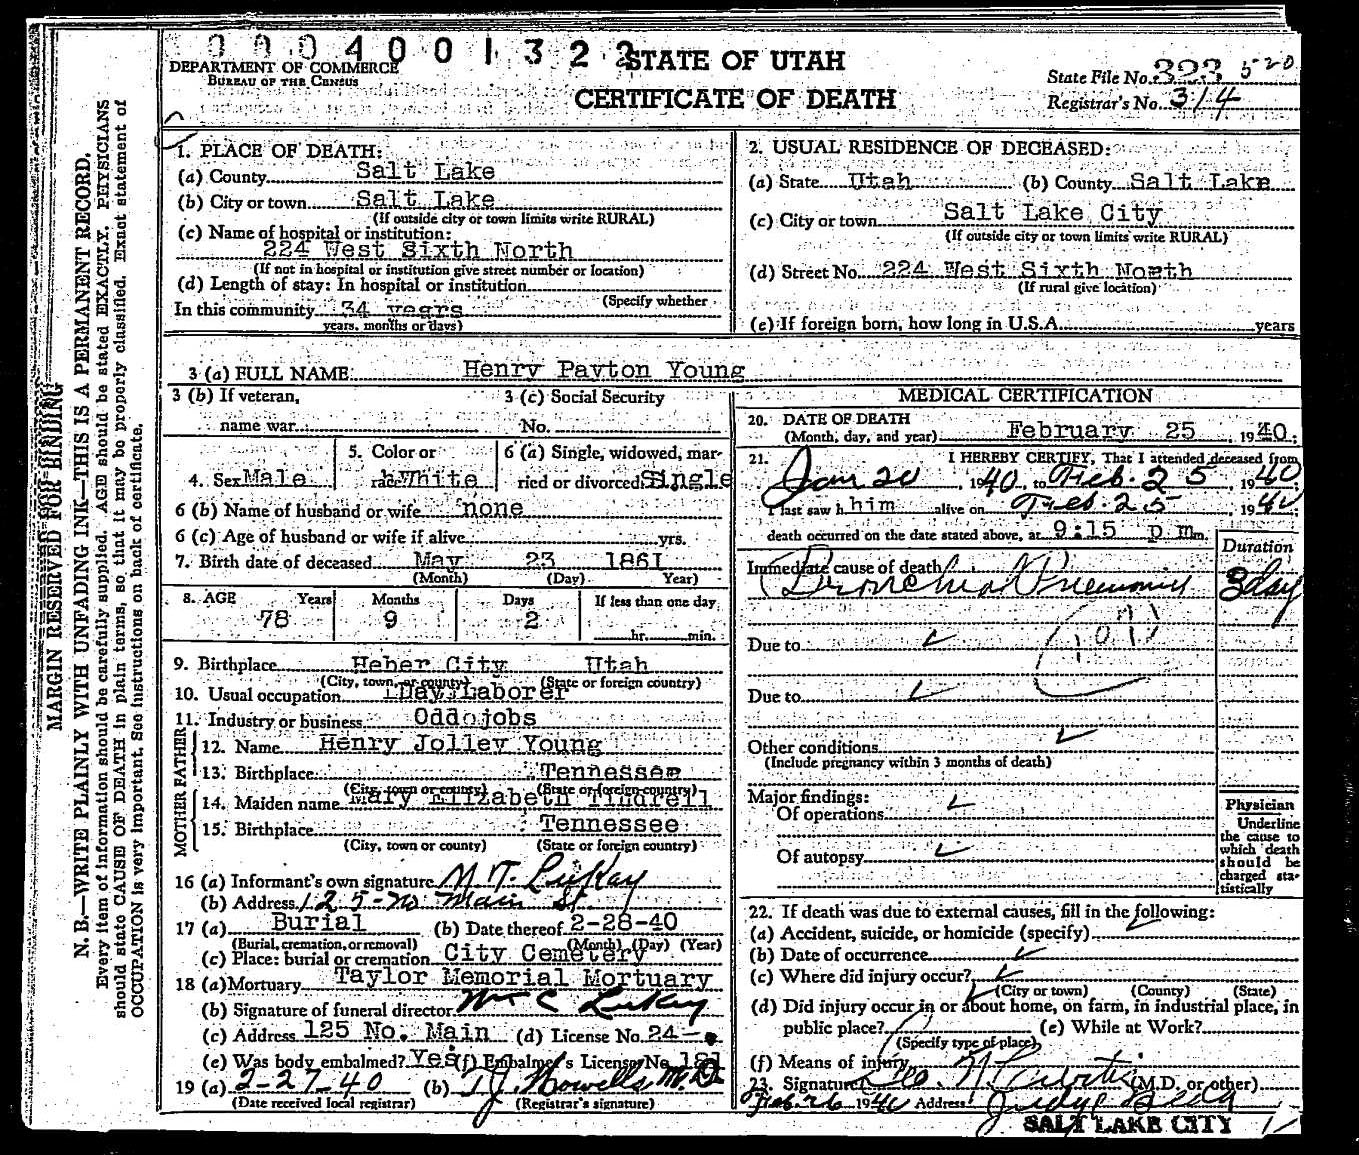 0004001322
STATE OF UTAH
DEPARTMENT OF COMMERCE
BUREAU OF THE CENSUS
CERTIFICATE OF DEATH
State File No. 323 520
Registrar's No. 314
MARGIN RESERVED FOR BINDING
N. B.—WRITE PLAINLY WITH UNFADING INK—THIS IS A PERMANENT RECORD.
Every item of information should be carefully supplied. AGE should be stated EXACTLY. PHYSICIANS
should state CAUSE OF DEATH in plain terms, so that it may be properly classified. Exact statement of
OCCUPATION is very important. See instructions on back of certificate.
1. PLACE OF DEATH:
(a) County Salt Lake
(b) City or town Salt Lake
(If outside city or town limits write RURAL)
(c) Name of hospital or institution:
224 West Sixth North
(If not in hospital or institution give street number or location)
(d) Length of stay: In hospital or institution
(Specify whether
In this community 34 years
years, months or days)
2. USUAL RESIDENCE OF DECEASED:
(a) State Utah (b) County Salt Lake
(c) City or town Salt Lake City
(If outside city or town limits write RURAL)
(d) Street No. 224 West Sixth North
(If rural give location)
(e) If foreign born, how long in U.S.A. years
3 (a) FULL NAME Henry Payton Young
3 (b) If veteran,
name war
3 (c) Social Security
No.
4. Sex Male
5. Color or
race White
6 (a) Single, widowed, mar-
ried or divorced Single
6 (b) Name of husband or wife none
6 (c) Age of husband or wife if alive yrs.
7. Birth date of deceased May 23 1861
(Month) (Day) Year)
8. AGE Years Months Days If less than one day
78 9 2 hr. min.
9. Birthplace Heber City Utah
(City, town, or county) (State or foreign country)
10. Usual occupation Day Laborer
11. Industry or business Odd jobs
FATHER
12. Name Henry Jolley Young
13. Birthplace Tennessee
(City, town or county) (State or foreign country)
MOTHER
14. Maiden name Mary Elizabeth Tindrell
15. Birthplace Tennessee
(City, town or county) (State or foreign country)
16 (a) Informant's own signature
(b) Address 125 no Main St
17 (a) Burial (b) Date thereof 2-28-40
(Burial, cremation, or removal) (Month) (Day) (Year)
(c) Place: burial or cremation City Cemetery
18 (a) Mortuary Taylor Memorial Mortuary
(b) Signature of funeral director
(c) Address 125 No. Main (d) License No. 24
(e) Was body embalmed? Yes (f) Embalmer's License No. 181
19 (a) 2-27-40 (b) T.J. Howells M.D.
(Date received local registrar) (Registrar's signature)
MEDICAL CERTIFICATION
20. DATE OF DEATH
(Month, day, and year) February 25, 1940;
21. I HEREBY CERTIFY, That I attended deceased from
Jan 20, 1940, to Feb. 25, 1940
I last saw h him alive on Feb. 25, 1940;
death occurred on the date stated above, at 9:15 p m.
Duration
Immediate cause of death
Bronchial Pneumonia 3 day
Due to
107
Due to
Other conditions
(Include pregnancy within 3 months of death)
Major findings:
Of operations
Of autopsy
Physician
Underline
the cause to
which death
should be
charged sta-
tistically
22. If death was due to external causes, fill in the following:
(a) Accident, suicide, or homicide (specify)
(b) Date of occurrence
(c) Where did injury occur?
(City or town) (County) (State)
(d) Did injury occur in or about home, on farm, in industrial place, in
public place? (e) While at Work?
(Specify type of place)
(f) Means of injury
23. Signature Geo. N. Curtis (M.D. or other)
Feb 26 1940 Address Judge Bldg
SALT LAKE CITY